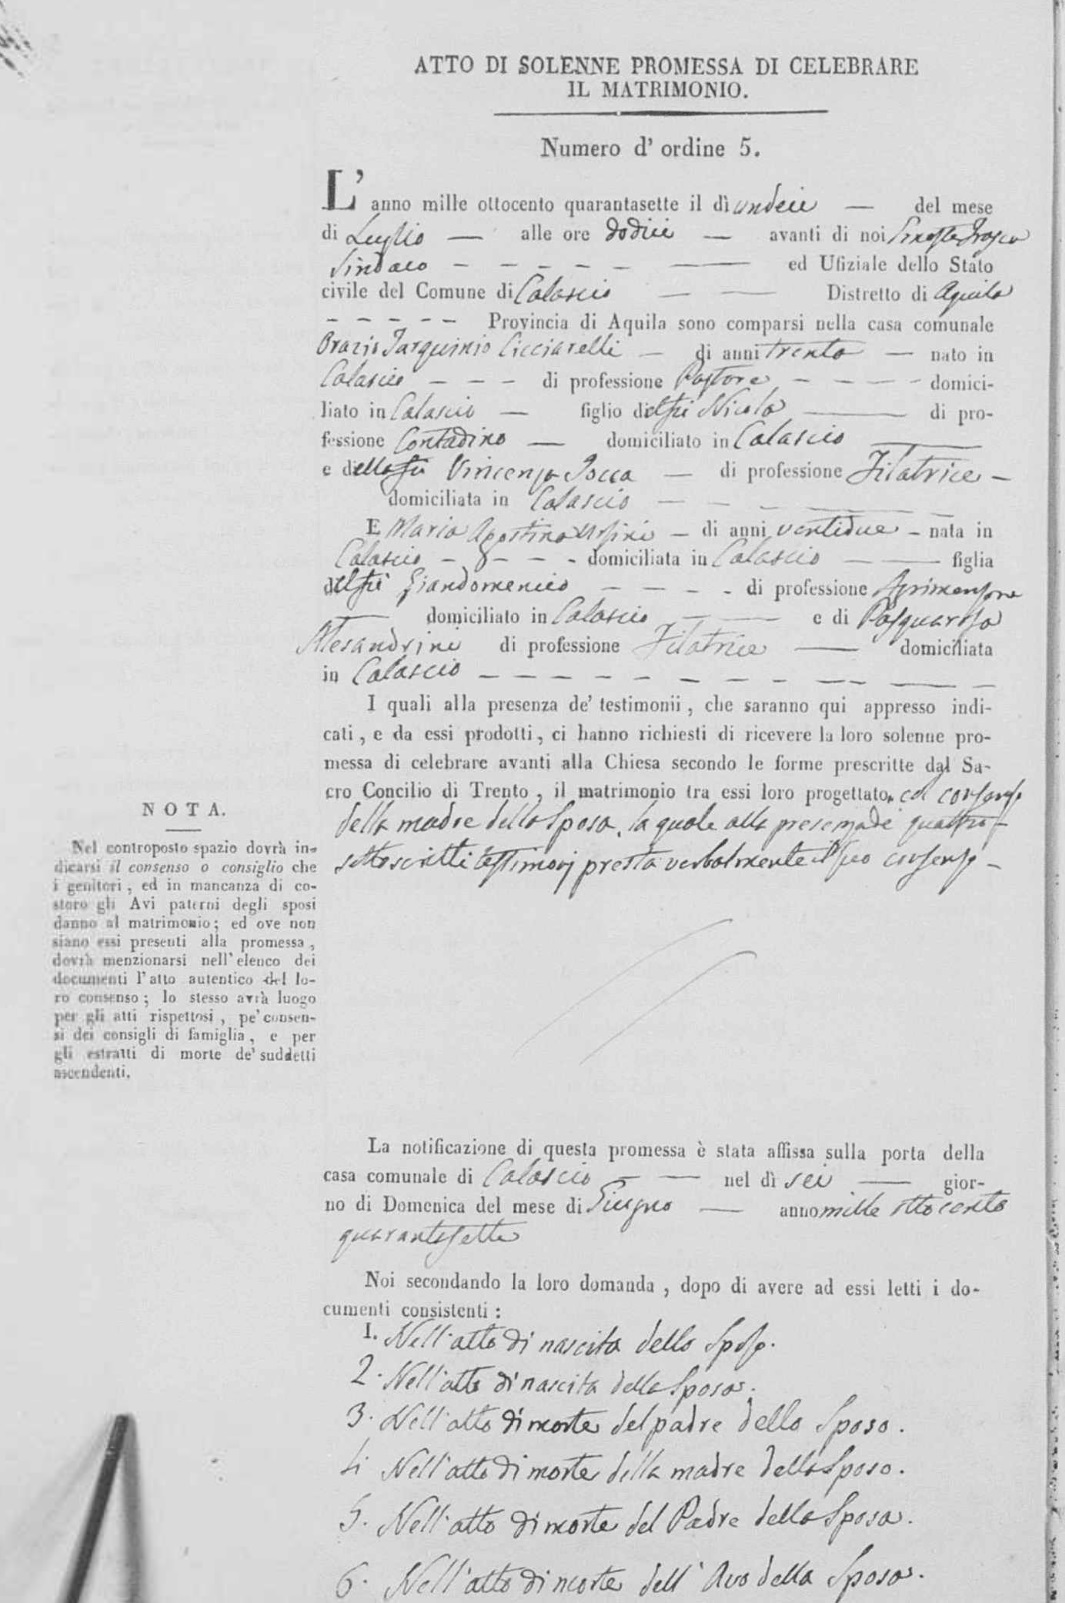 ATTO DI SOLENNE PROMESSA DI CELEBRARE
IL MATRIMONIO.
Numero d' ordine 5.
L' anno mille ottocento quarantasette il dì undeci — del mese
di Luglio — alle ore dodici — avanti di noi
Sindaco — — — — — ed Ufiziale dello Stato
civile del Comune di Calascio — — Distretto di Aquila
— — — — — Provincia di Aquila sono comparsi nella casa comunale
Orazio Tarquinio Cicciarelli — di anni trenta — nato in
Calascio — — — di professione Pastore — — — — domici-
liato in Calascio — figlio del fù Nicola — di pro-
fessione Contadino — domiciliato in Calascio —
e della fù Vincenza Jocca — di professione Filatrice —
domiciliata in Calascio — — — — —
E Maria Agostina Ursini — di anni ventidue — nata in
Calascio — — — — domiciliata in Calascio — — figlia
del fù Giandomenico — — — — di professione Agrimensore
— domiciliato in Calascio — — e di Pasquarosa
Alesandrini di professione Filatrice — domiciliata
in Calascio — — — — — — — — — — —
I quali alla presenza de' testimonii, che saranno qui appresso indi-
cati, e da essi prodotti, ci hanno richiesti di ricevere la loro solenne pro-
messa di celebrare avanti alla Chiesa secondo le forme prescritte dal Sa-
cro Concilio di Trento, il matrimonio tra essi loro progettato, col consenso
della madre della Sposa, la quale alla presenza de' quattro
sottoscritti testimonj presta verbalmente il suo consenso —
NOTA.
Nel controposto spazio dovrà in-
dicarsi il consenso o consiglio che
i genitori, ed in mancanza di co-
storo gli Avi paterni degli sposi
danno al matrimonio; ed ove non
siano essi presenti alla promessa,
dovrà menzionarsi nell'elenco dei
documenti l'atto autentico del lo-
ro consenso; lo stesso avrà luogo
per gli atti rispettosi, pe' consen-
si dei consigli di famiglia, e per
gli estratti di morte de' suddetti
ascendenti.
La notificazione di questa promessa è stata affissa sulla porta della
casa comunale di Calascio — — nel dì sei — gior-
no di Domenica del mese di Giugno — anno mille ottocento
quarantasette
Noi secondando la loro domanda, dopo di avere ad essi letti i do-
cumenti consistenti :
1. Nell'atto di nascita dello Sposo.
2. Nell'atto di nascita della Sposa.
3. Nell'atto di morte del padre dello Sposo.
4. Nell'atto di morte della madre dello Sposo.
5. Nell'atto di morte del Padre della Sposa.
6. Nell'atto di morte dell'Avo della Sposa.